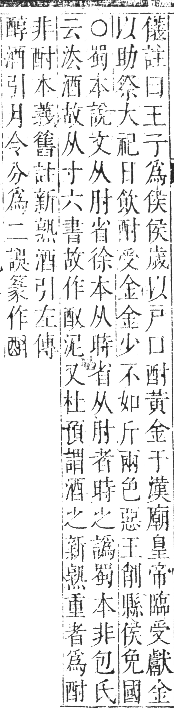 儀註曰王子爲侯侯歲以戸口酎黃金于漢廟皇帝臨受獻金
以助祭大祀日飲酎受金金少不如斤兩色惡王削縣侯免國
○蜀本說文从肘省徐本从時省从肘者時之譌蜀本非包氏
云沃酒故从寸六書故作䣧泥又杜預謂酒之新熟重者爲酎
非酎本義舊註新熟酒引左傳
醇酒引月令分爲二誤篆作